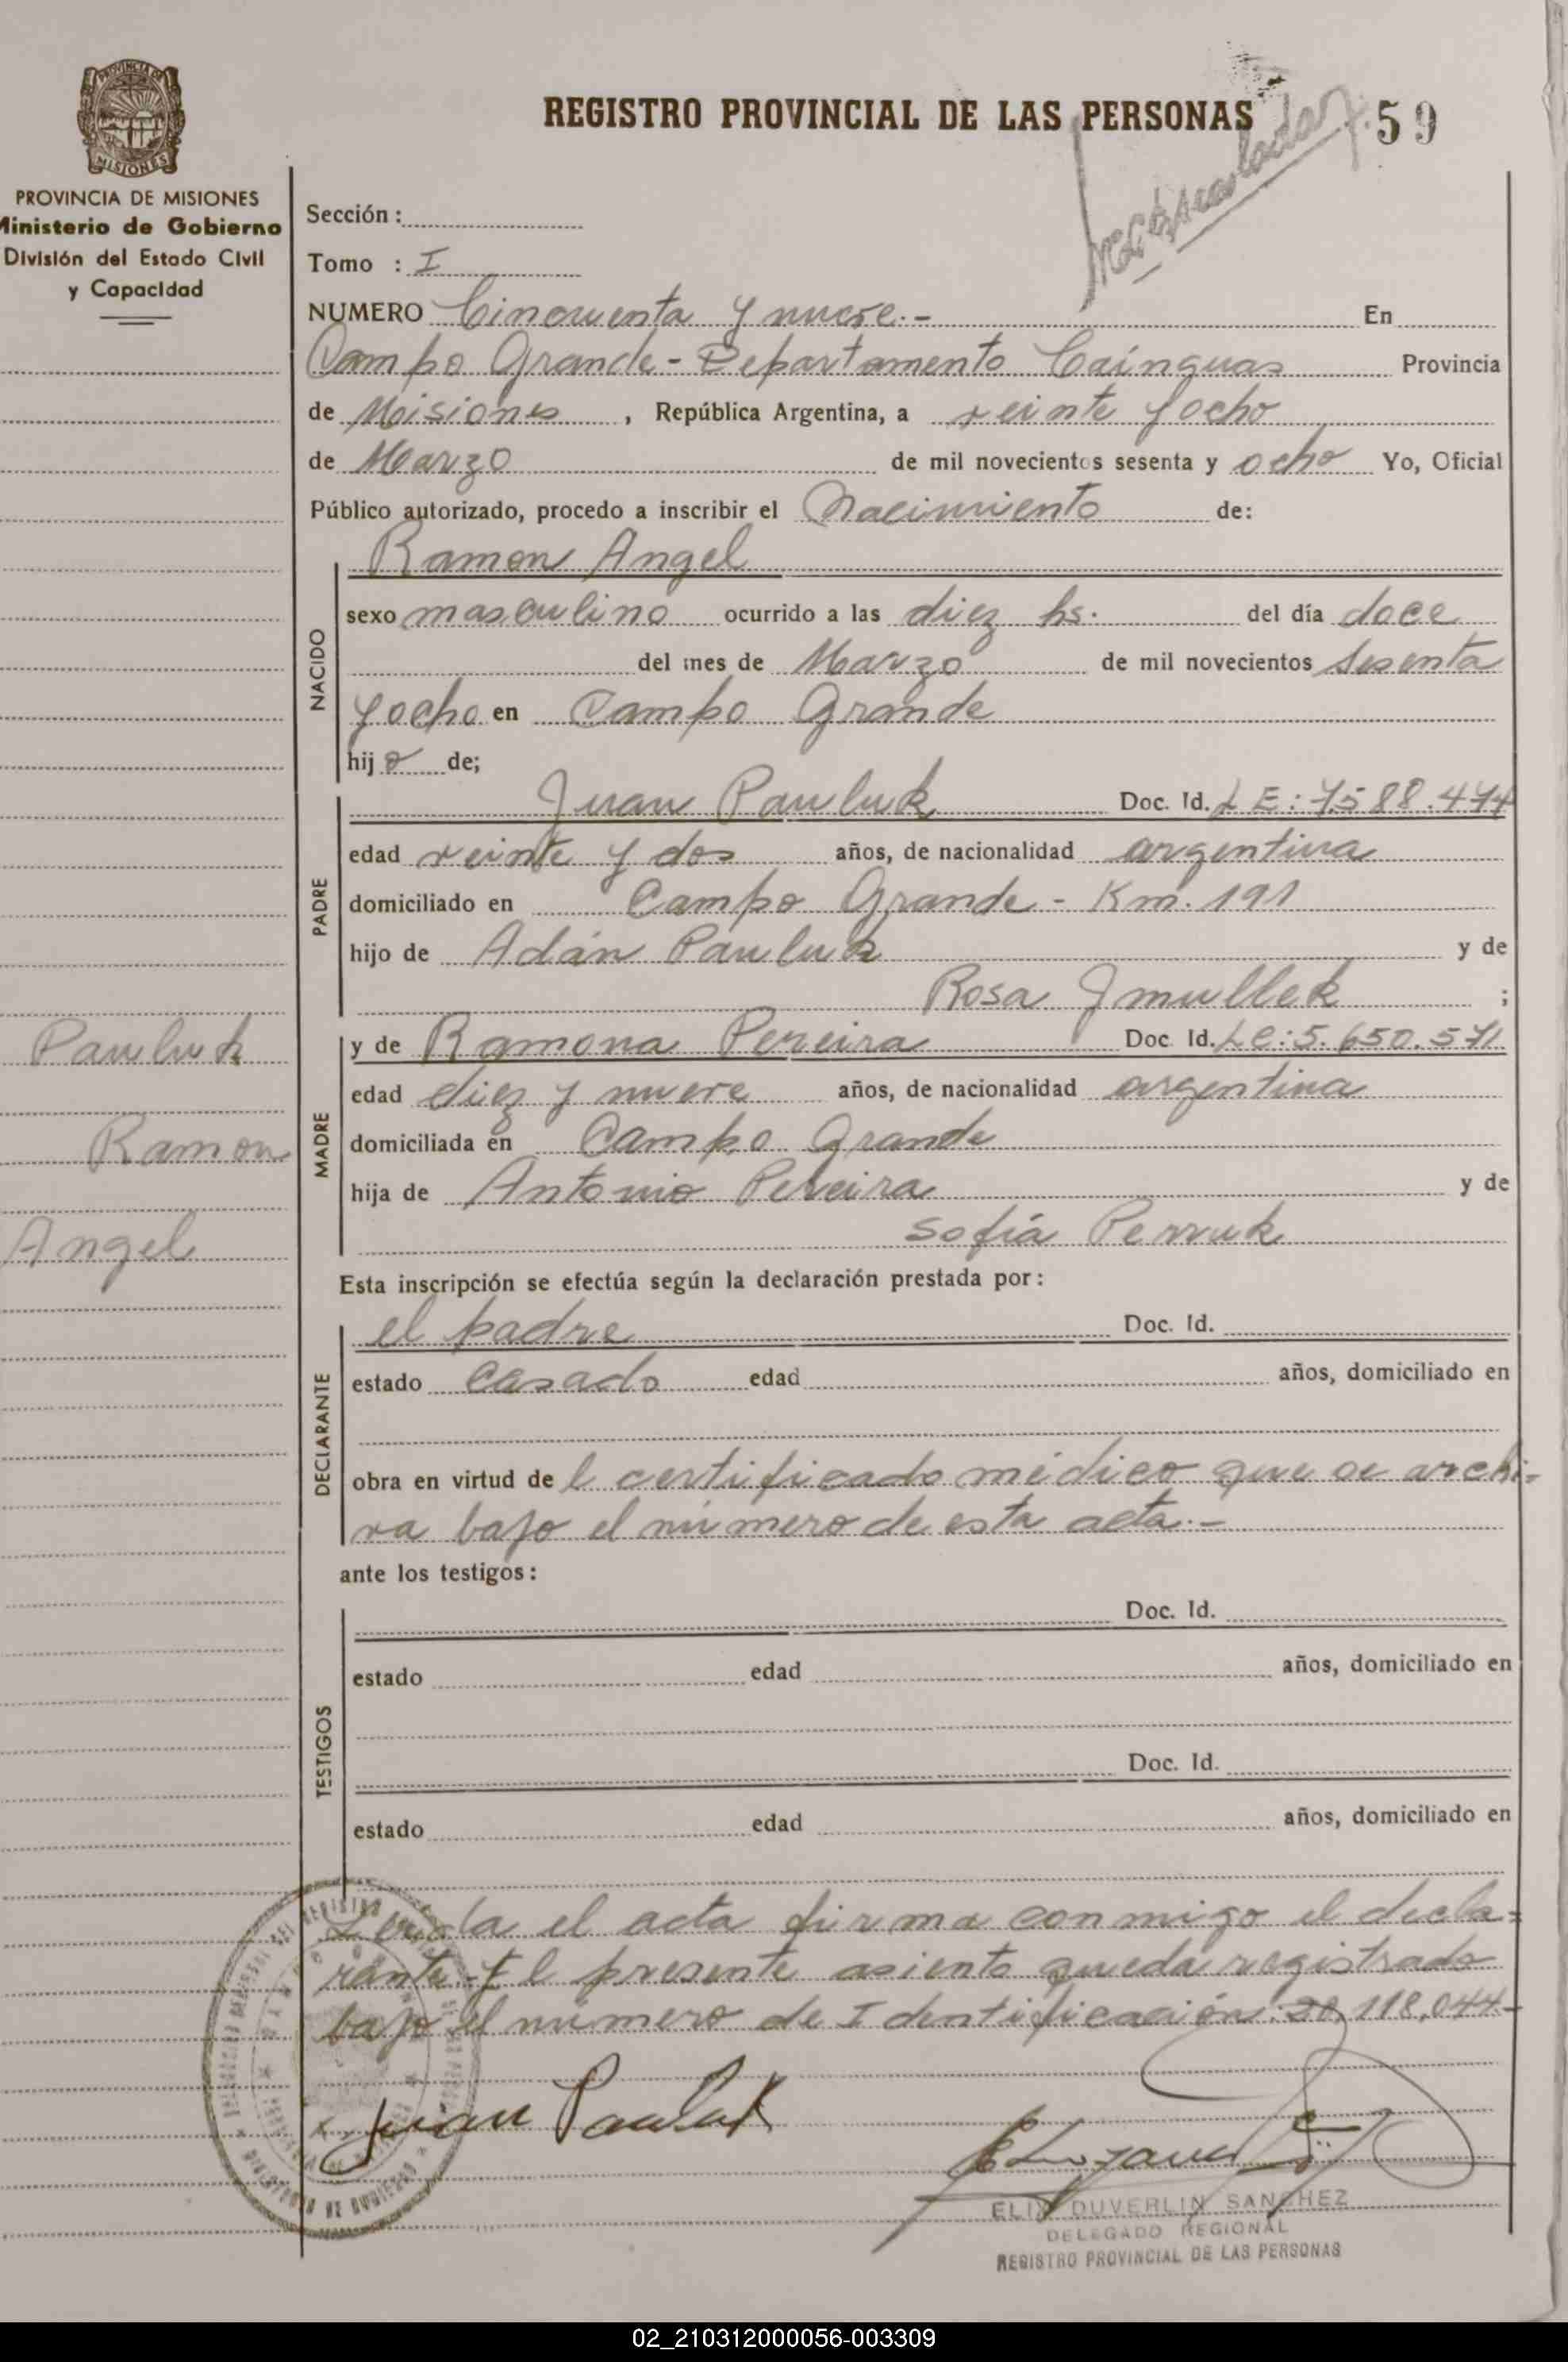 REGISTRO PROVINCIAL DE LAS PERSONAS
59
PROVINCIA DE MISIONES
Ministerio de Gobierno
División del Estado Civil
y Capacidad
Sección :
Tomo : I
NUMERO Cincuenta y nueve.- En
Campo Grande - Departamento Cainguas Provincia
de Misiones , República Argentina, a veinte y ocho
de Marzo de mil novecientos sesenta y ocho Yo, Oficial
Público autorizado, procedo a inscribir el Nacimiento de:
NACIDO
Ramon Angel
sexo masculino ocurrido a las diez hs. del día doce
del mes de Marzo de mil novecientos sesenta
y ocho en Campo Grande
hij o de;
PADRE
Juan Pauluk Doc. Id. L E: 7.588.474
edad veinte y dos años, de nacionalidad argentina
domiciliado en Campo Grande - Km. 191
hijo de Adán Pauluk y de
Rosa Jmullek ;
MADRE
y de Ramona Pereira Doc. Id. LC: 5.650.571
edad diez y nueve años, de nacionalidad argentina
domiciliada en Campo Grande
hija de Antonio Pereira y de
Sofía Perruk
Pauluk
Ramon
Angel
Esta inscripción se efectúa según la declaración prestada por:
DECLARANTE
el padre Doc. Id.
estado Casado edad años, domiciliado en
obra en virtud de l certificado médico que se archi-
va bajo el número de esta acta.-
ante los testigos:
TESTIGOS
Doc. Id.
estado edad años, domiciliado en
Doc. Id.
estado edad años, domiciliado en
Leída el acta firma conmigo el decla-
rante. El presente asiento queda registrado
bajo el número de Identificación: 20.118.044-
Juan Pauluk
DUVERLIN SANCHEZ
DELEGADO REGIONAL
REGISTRO PROVINCIAL DE LAS PERSONAS
02_210312000056-003309